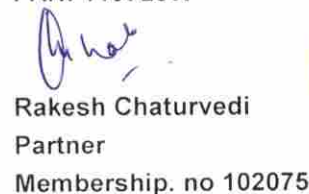 Rakesh Chaturvedi
Partner
Membership. no 102075